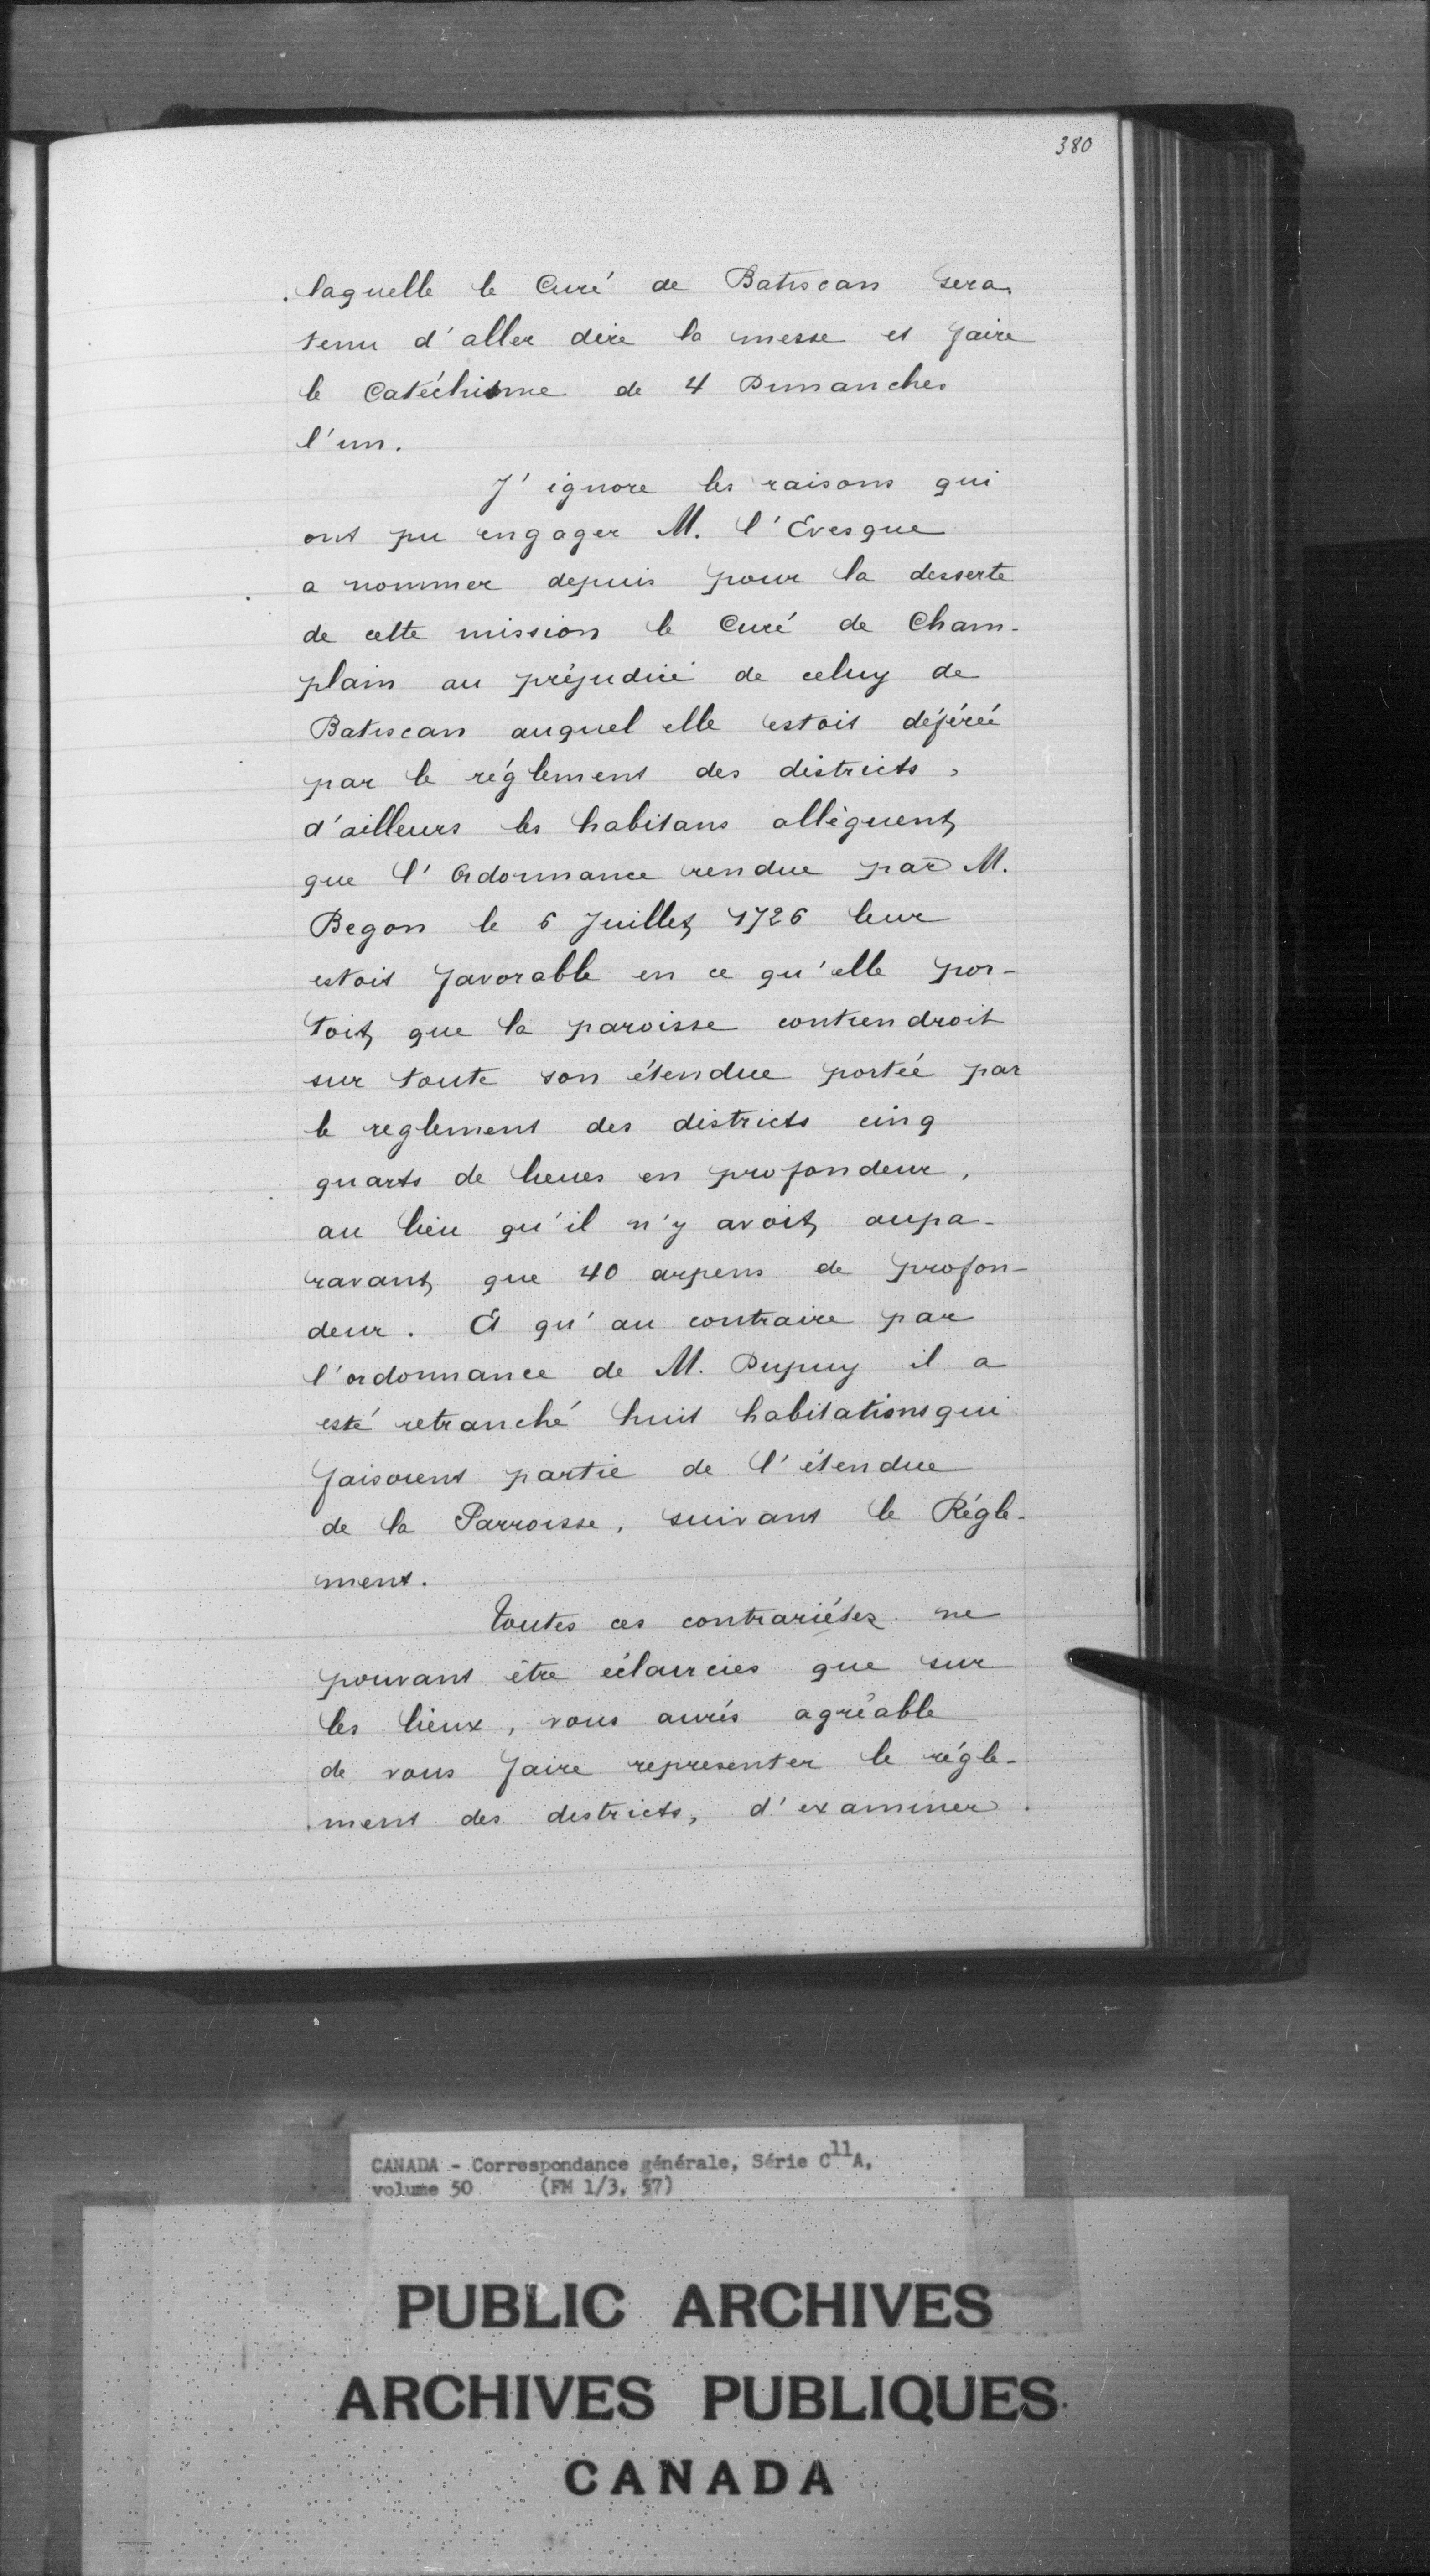 380
laquelle le Curé de Batiscan sera
tenu d'aller dire la messe et faire
le Catéchisme de 4 Dimanches
l'un.
J'ignore les raisons qui
ont pu engager M. l'Evesque
a nommer depuis pour la desserte
de cette mission le Curé de Cham-
plain au préjudice de celuy de
Batiscan auquel elle estoit déférée
par le réglement des districts,
d'ailleurs les habitans allèguent
que l'Ordonnance rendue par M.
Begon le 6 Juillet 1726 leur
estoit favorable en ce qu'elle por-
toit que la paroisse contiendroit
sur toute son étendue portée par
le reglement des districts cinq
quarts de lieues en profondeur,
au lieu qu'il n'y avoit aupa-
ravant que 40 arpens de profon-
deur. Et qu'au contraire par
l'ordonnance de M. Dupuy il a
esté retranché huit habitations qui
faisoient partie de l'étendue
de la Parroisse, suivant le Régle-
ment.
Toutes ces contrariétez ne
pouvant être éclaircies que sur
les lieux, vous aurés agréable
de vous faire representer le régle-
ment des districts, d'examiner
CANADA - Correspondance générale, Série C11A,
volume 50 (FM 1/3, 57)
PUBLIC ARCHIVES
ARCHIVES PUBLIQUES
CANADA